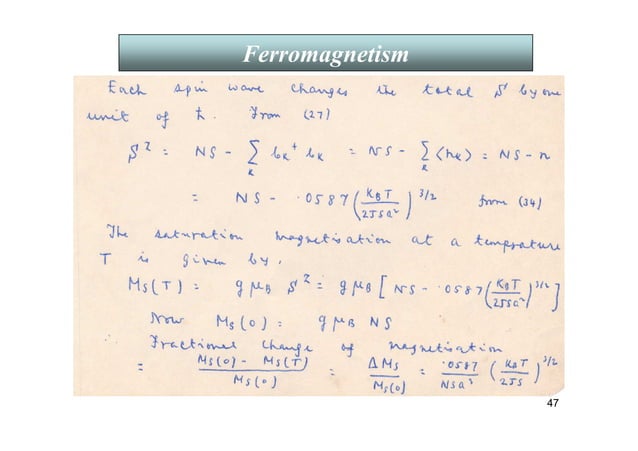 Ferromagnetism
Each spin wave changes the total S by one
unit of ħ. From (27)
S^Z = NS - Σ_K b_K^+ b_K = NS - Σ_K ⟨n_K⟩ = NS - n
= NS - ·0587 (K_B T / 2JSa²)^3/2 from (34)
The saturation magnetisation at a temprature
T is given by,
M_S(T) = g μ_B S^Z = g μ_B [NS - ·0587 (K_B T / 2JSa²)^3/2]
Now M_S(0) = g μ_B NS
∴ Fractional change of magnetisation
= (M_S(0) - M_S(T)) / M_S(0) = ΔM_S / M_S(0) = ·0587 / NSa³ (K_B T / 2JS)^3/2
47